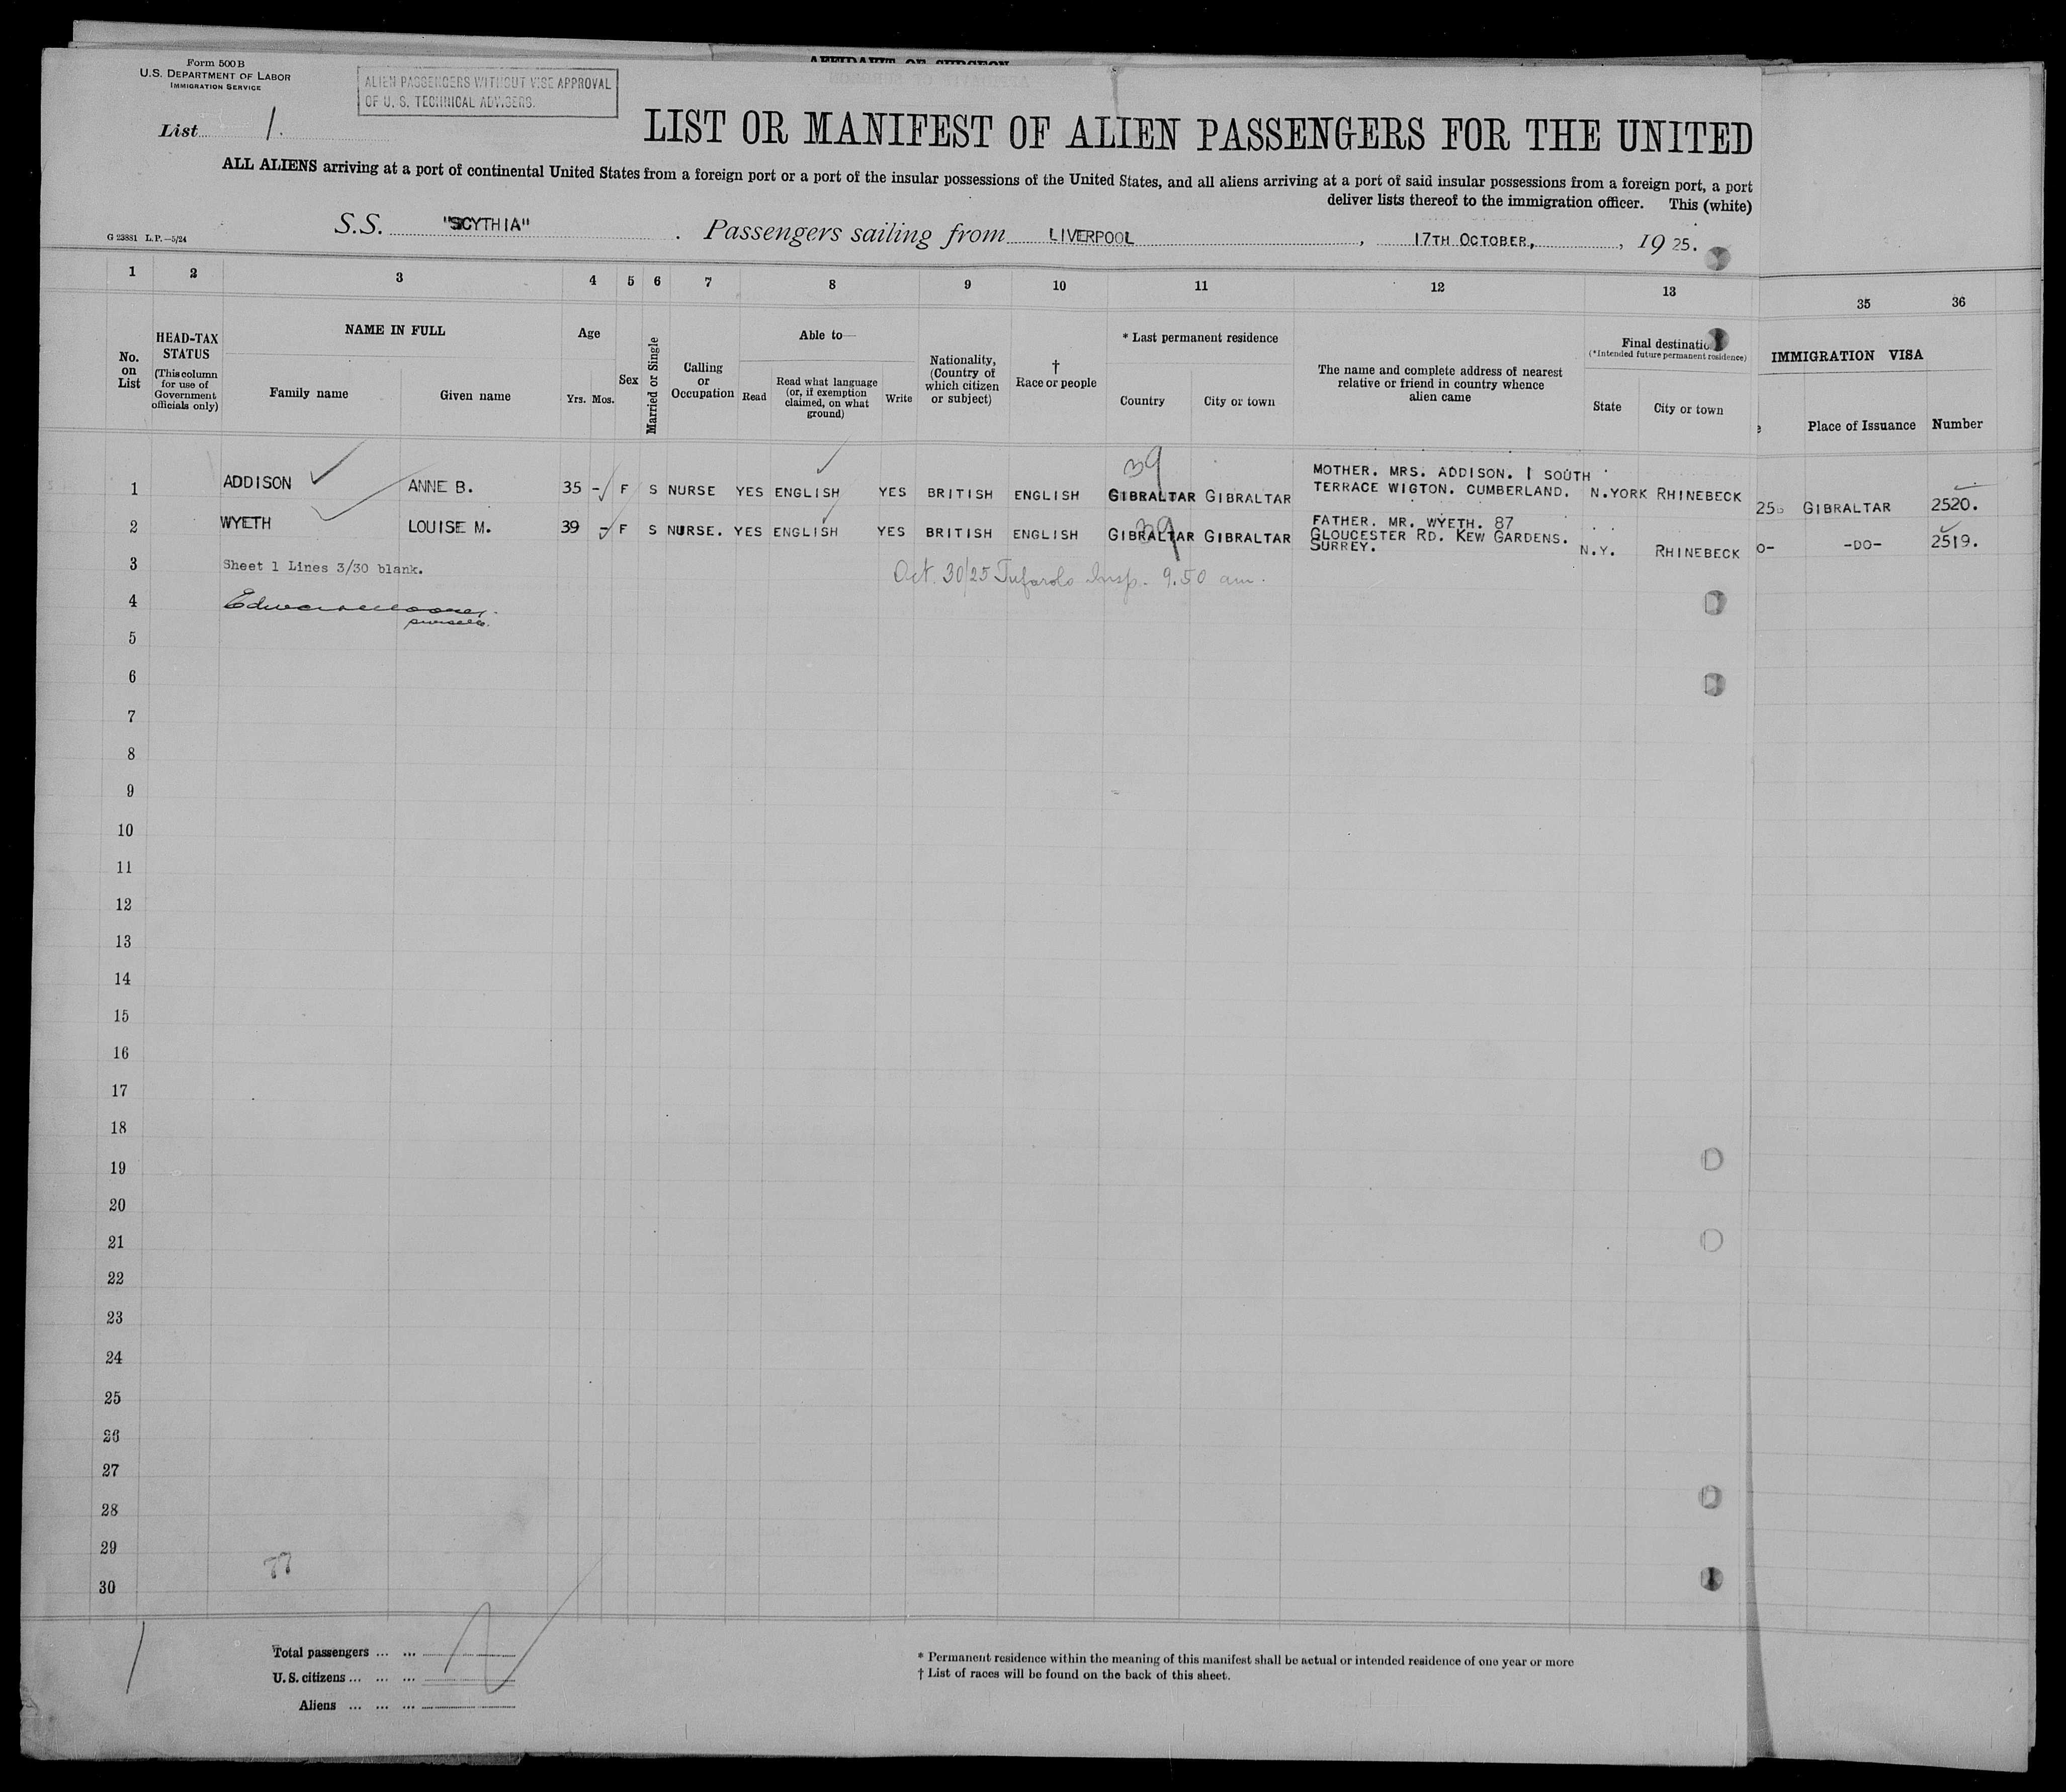 AFFIDAVIT OF SURGEON
Form 500 B
U.S. DEPARTMENT OF LABOR
IMMIGRATION SERVICE
ALIEN PASSENGERS WITHOUT VISE APPROVAL
OF U. S. TECHNICAL ADVISERS.
List 1.
LIST OR MANIFEST OF ALIEN PASSENGERS FOR THE UNITED
ALL ALIENS arriving at a port of continental United States from a foreign port or a port of the insular possessions of the United States, and all aliens arriving at a port of said insular possessions from a foreign port, a port
deliver lists thereof to the immigration officer. This (white)
G 23881 L.P.—5/24
S.S. "SCYTHIA" . Passengers sailing from LIVERPOOL , 17TH OCTOBER, , 19 25.
1 2 3 4 5 6 7 8 9 10 11 12 13 35 36
No. on List
HEAD-TAX STATUS
(This column for use of Government officials only)
NAME IN FULL
Family name Given name
Age
Yrs. Mos.
Sex
Married or Single
Calling or Occupation
Able to—
Read
Read what language (or, if exemption claimed, on what ground)
Write
Nationality, (Country of which citizen or subject)
† Race or people
* Last permanent residence
Country City or town
The name and complete address of nearest relative or friend in country whence alien came
Final destinatio
(*Intended future permanent residence)
State City or town
IMMIGRATION VISA
Place of Issuance Number
39
1 ADDISON ANNE B. 35 - F S NURSE YES ENGLISH YES BRITISH ENGLISH GIBRALTAR GIBRALTAR MOTHER. MRS. ADDISON. 1 SOUTH
TERRACE WIGTON. CUMBERLAND. N.YORK RHINEBECK 25 GIBRALTAR 2520.
39
2 WYETH LOUISE M. 39 - F S NURSE. YES ENGLISH YES BRITISH ENGLISH GIBRALTAR GIBRALTAR FATHER. MR. WYETH. 87
GLOUCESTER RD. KEW GARDENS.
SURREY. N.Y. RHINEBECK O- -DO- 2519.
3 Sheet 1 Lines 3/30 blank. Oct. 30/25 Tufarolo Insp. 9.50 am.
4
5
6
7
8
9
10
11
12
13
14
15
16
17
18
19
20
21
22
23
24
25
26
27
28
29
77
30
1
Total passengers ... ...
U.S. citizens ... ... ...
Aliens ... ... ...
* Permanent residence within the meaning of this manifest shall be actual or intended residence of one year or more
† List of races will be found on the back of this sheet.